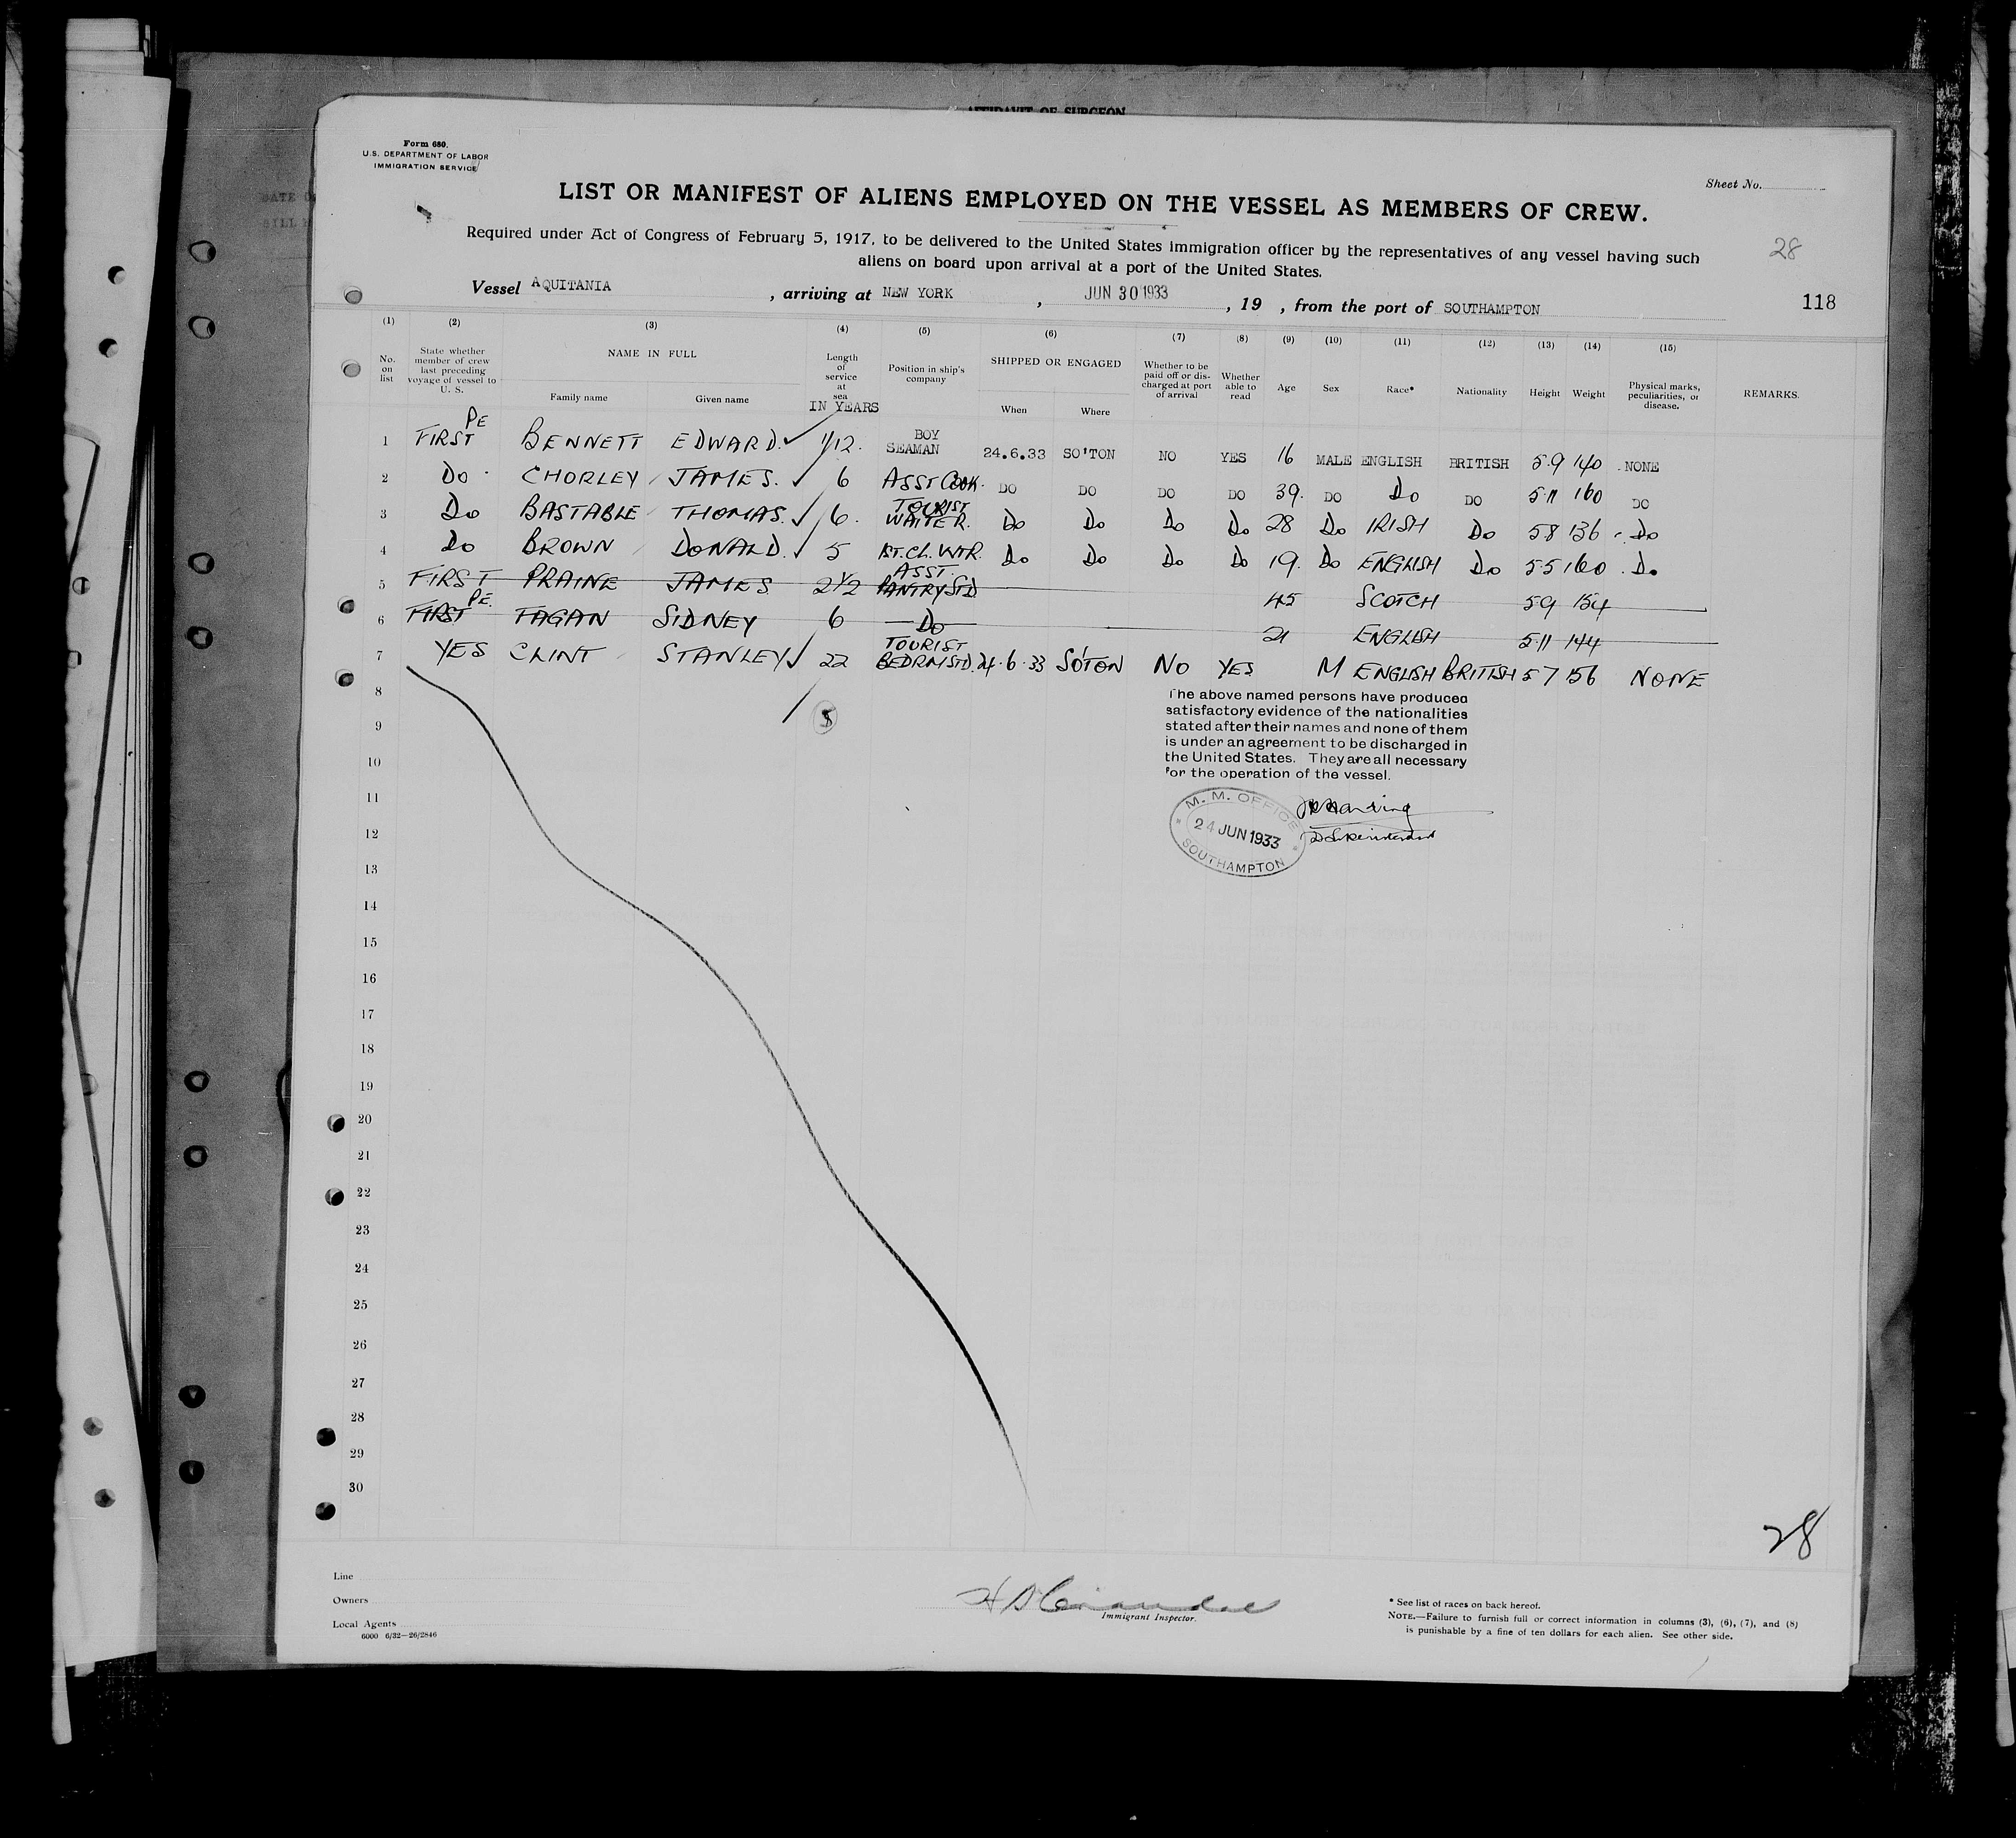 AFFIDAVIT OF SURGEON
Form 680.
U.S. DEPARTMENT OF LABOR
IMMIGRATION SERVICE
Sheet No.
LIST OR MANIFEST OF ALIENS EMPLOYED ON THE VESSEL AS MEMBERS OF CREW.
Required under Act of Congress of February 5, 1917, to be delivered to the United States immigration officer by the representatives of any vessel having such
aliens on board upon arrival at a port of the United States.
28
Vessel AQUITANIA , arriving at NEW YORK , JUN 30 1933 , 19 , from the port of SOUTHAMPTON
118
(1) (2) (3) (4) (5) (6) (7) (8) (9) (10) (11) (12) (13) (14) (15)
No. on list
State whether member of crew last preceding voyage of vessel to U. S.
NAME IN FULL
Family name Given name
Length of service at sea
IN YEARS
Position in ship's company
SHIPPED OR ENGAGED
When Where
Whether to be paid off or discharged at port of arrival
Whether able to read
Age Sex Race* Nationality Height Weight
Physical marks, peculiarities, or disease.
REMARKS.
1 FIRST PE BENNETT EDWARD. 1/12. BOY SEAMAN 24.6.33 SO'TON NO YES 16 MALE ENGLISH BRITISH 5.9 140 NONE
2 Do CHORLEY JAMES. 6 ASST COOK. DO DO DO DO 39. DO Do DO 5.11 160 DO
3 Do BASTABLE THOMAS. 6. TOURIST WAITER. Do Do Do Do 28 Do IRISH Do 5 8 136 Do
4 Do BROWN DONALD. 5 1ST.CL.WTR. Do Do Do Do 19. Do ENGLISH Do 5.5 160 Do
5 FIRST PRAINE JAMES 2 1/2 ASST. PANTRY STD. 45 SCOTCH 5.9 154
6 FIRST PE. FAGAN SIDNEY 6 Do 21 ENGLISH 5.11 144
7 YES CLINT STANLEY 22 TOURIST BEDRM STD. 24.6.33 SO'TON NO YES M ENGLISH BRITISH 5 7 156 NONE
8
9
10
11
12
13
14
15
16
17
18
19
20
21
22
23
24
25
26
27
28
29
30
5
The above named persons have produced
satisfactory evidence of the nationalities
stated after their names and none of them
is under an agreement to be discharged in
the United States. They are all necessary
for the operation of the vessel.
M. M. OFFICE
24 JUN 1933
SOUTHAMPTON
28
Line
Owners
Local Agents
6000 6/32—26/2846
Immigrant Inspector.
* See list of races on back hereof.
NOTE.—Failure to furnish full or correct information in columns (3), (6), (7), and (8)
is punishable by a fine of ten dollars for each alien. See other side.